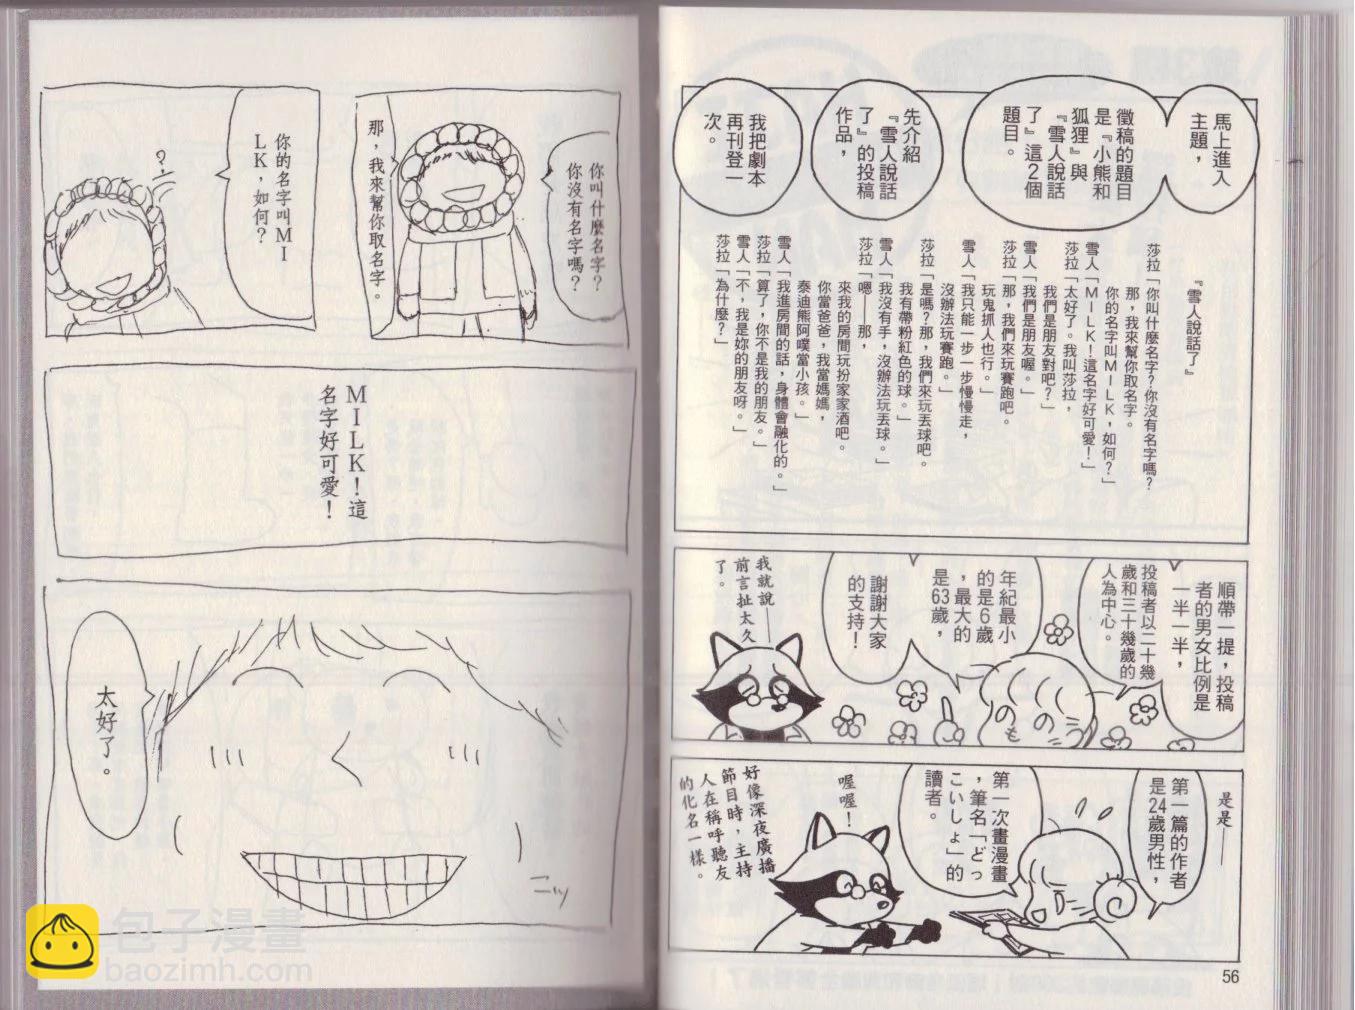 馬上進入
主題，
徵稿的題目
是『小熊和
狐狸』與
『雪人說話
了』這2個
題目。
先介紹
『雪人說話
了』的投稿
作品，
我把劇本
再刊登一
次。
『雪人說話了』
莎拉「你叫什麼名字？你沒有名字嗎？
那，我來幫你取名字。
你的名字叫MILK，如何？」
雪人「MILK！這名字好可愛！」
莎拉「太好了。我叫莎拉，
我們是朋友對吧？」
雪人「我們是朋友喔。」
莎拉「那，我們來玩賽跑吧。
玩鬼抓人也行。」
雪人「我只能一步一步慢慢走，
沒辦法玩賽跑。」
莎拉「是嗎？那，我們來玩丟球吧。
我有帶粉紅色的球。」
雪人「我沒有手，沒辦法玩丟球。」
莎拉「嗯——那，
來我的房間玩扮家家酒吧。
你當爸爸，我當媽媽，
泰迪熊阿噗當小孩。」
雪人「我進房間的話，身體會融化的。」
莎拉「算了，你不是我的朋友。」
雪人「不，我是妳的朋友呀。」
莎拉「為什麼？」
順帶一提，投稿
者的男女比例是
一半一半，
投稿者以二十幾
歲和三十幾歲的
人為中心。
年紀最小
的是6歲
，最大的
是63歲，
謝謝大家
的支持！
我就說——
前言扯太久
了。
のののも
是是——
第一篇的作者
是24歲男性，
第一次畫漫畫
，筆名「どっ
こいしょ」的
讀者。
喔喔！
好像深夜廣播
節目時，主持
人在稱呼聽友
的化名一樣。
56
你叫什麼名字？
你沒有名字嗎？
那，我來幫你取名字。
你的名字叫MI
LK，如何？
？
MILK！這
名字好可愛！
太好了。
ニッ
包子漫畫
baozimh.com